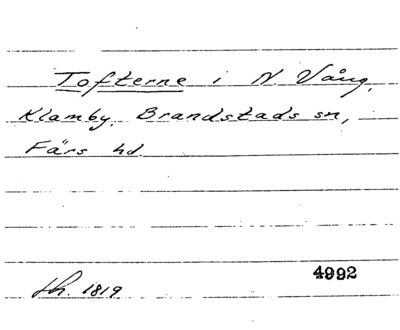 Tofterne i N. Vång,
Klamby. Brandstads sn,
Färs hd.
sk. 1819
4992